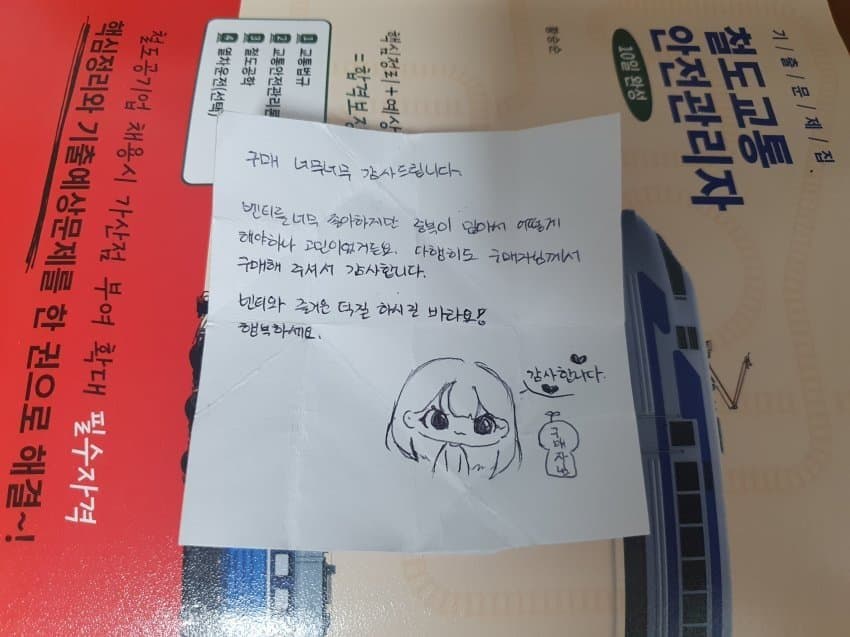 구매 너무너무 감사드립니다.
벤티를 너무 좋아하지만 중복이 많아서 어떻게
해야하나 고민이였거든요. 다행히도 구매자님께서
구매해 주셔서 감사합니다.
벤티와 즐거운 덕질 하시길 바라요!
행복하세요.
감사합니다.
구매자님
기/출/문/제/집.
철도교통
안전관리자
10일 완성
황승순
핵심정리+예상
=합격보장
1 교통법규
2 교통안전관리론
3 철도공학
4 열차운전(선택)
철도공기업 채용시 가산점 부여 확대 필수자격
핵심정리와 기출예상문제를 한 권으로 해결~!